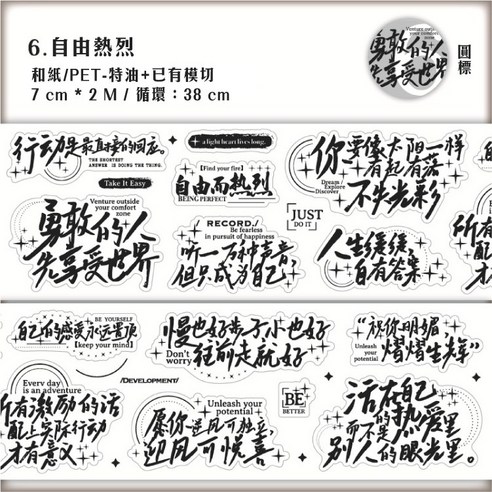 6.自由熱烈
和紙/PET-特油+已有模切
7 cm * 2 M / 循環：38 cm
Venture outside your comfort zone
勇敢的人
先享受世界
圓標
行动是最直接的回应。
THE SHORTEST
ANSWER IS DOING THE THING.
Take It Easy
Venture outside
your comfort
zone
勇敢的人
先享受世界
a light heart lives long.
[Find your fire]
自由而热烈
BEING PERFECT
RECORD./
Be fearless
in pursuit of happiness
听一万种声音，
但只成为自己，
JUST
DO IT
你要像太阳一样
有起有落
不失光彩
Dream/
Explore
Discover
人生缓缓
自有答案
自己的感受永远置顶
BE YOURSELF
[keep your mind]
慢也好步子小也好
往前走就好
Don't
worry
"祝你明媚
熠熠生辉"
Unleash
your
potential
Every day
is an adventure
所有激励的话
配上实际行动
才有意义
/DEVELOPMENT/
Unleash your
potential
愿你逆风可独立，
迎风可悦喜
BE
BETTER
活在自己的热爱里
而不是
别人的眼光里。